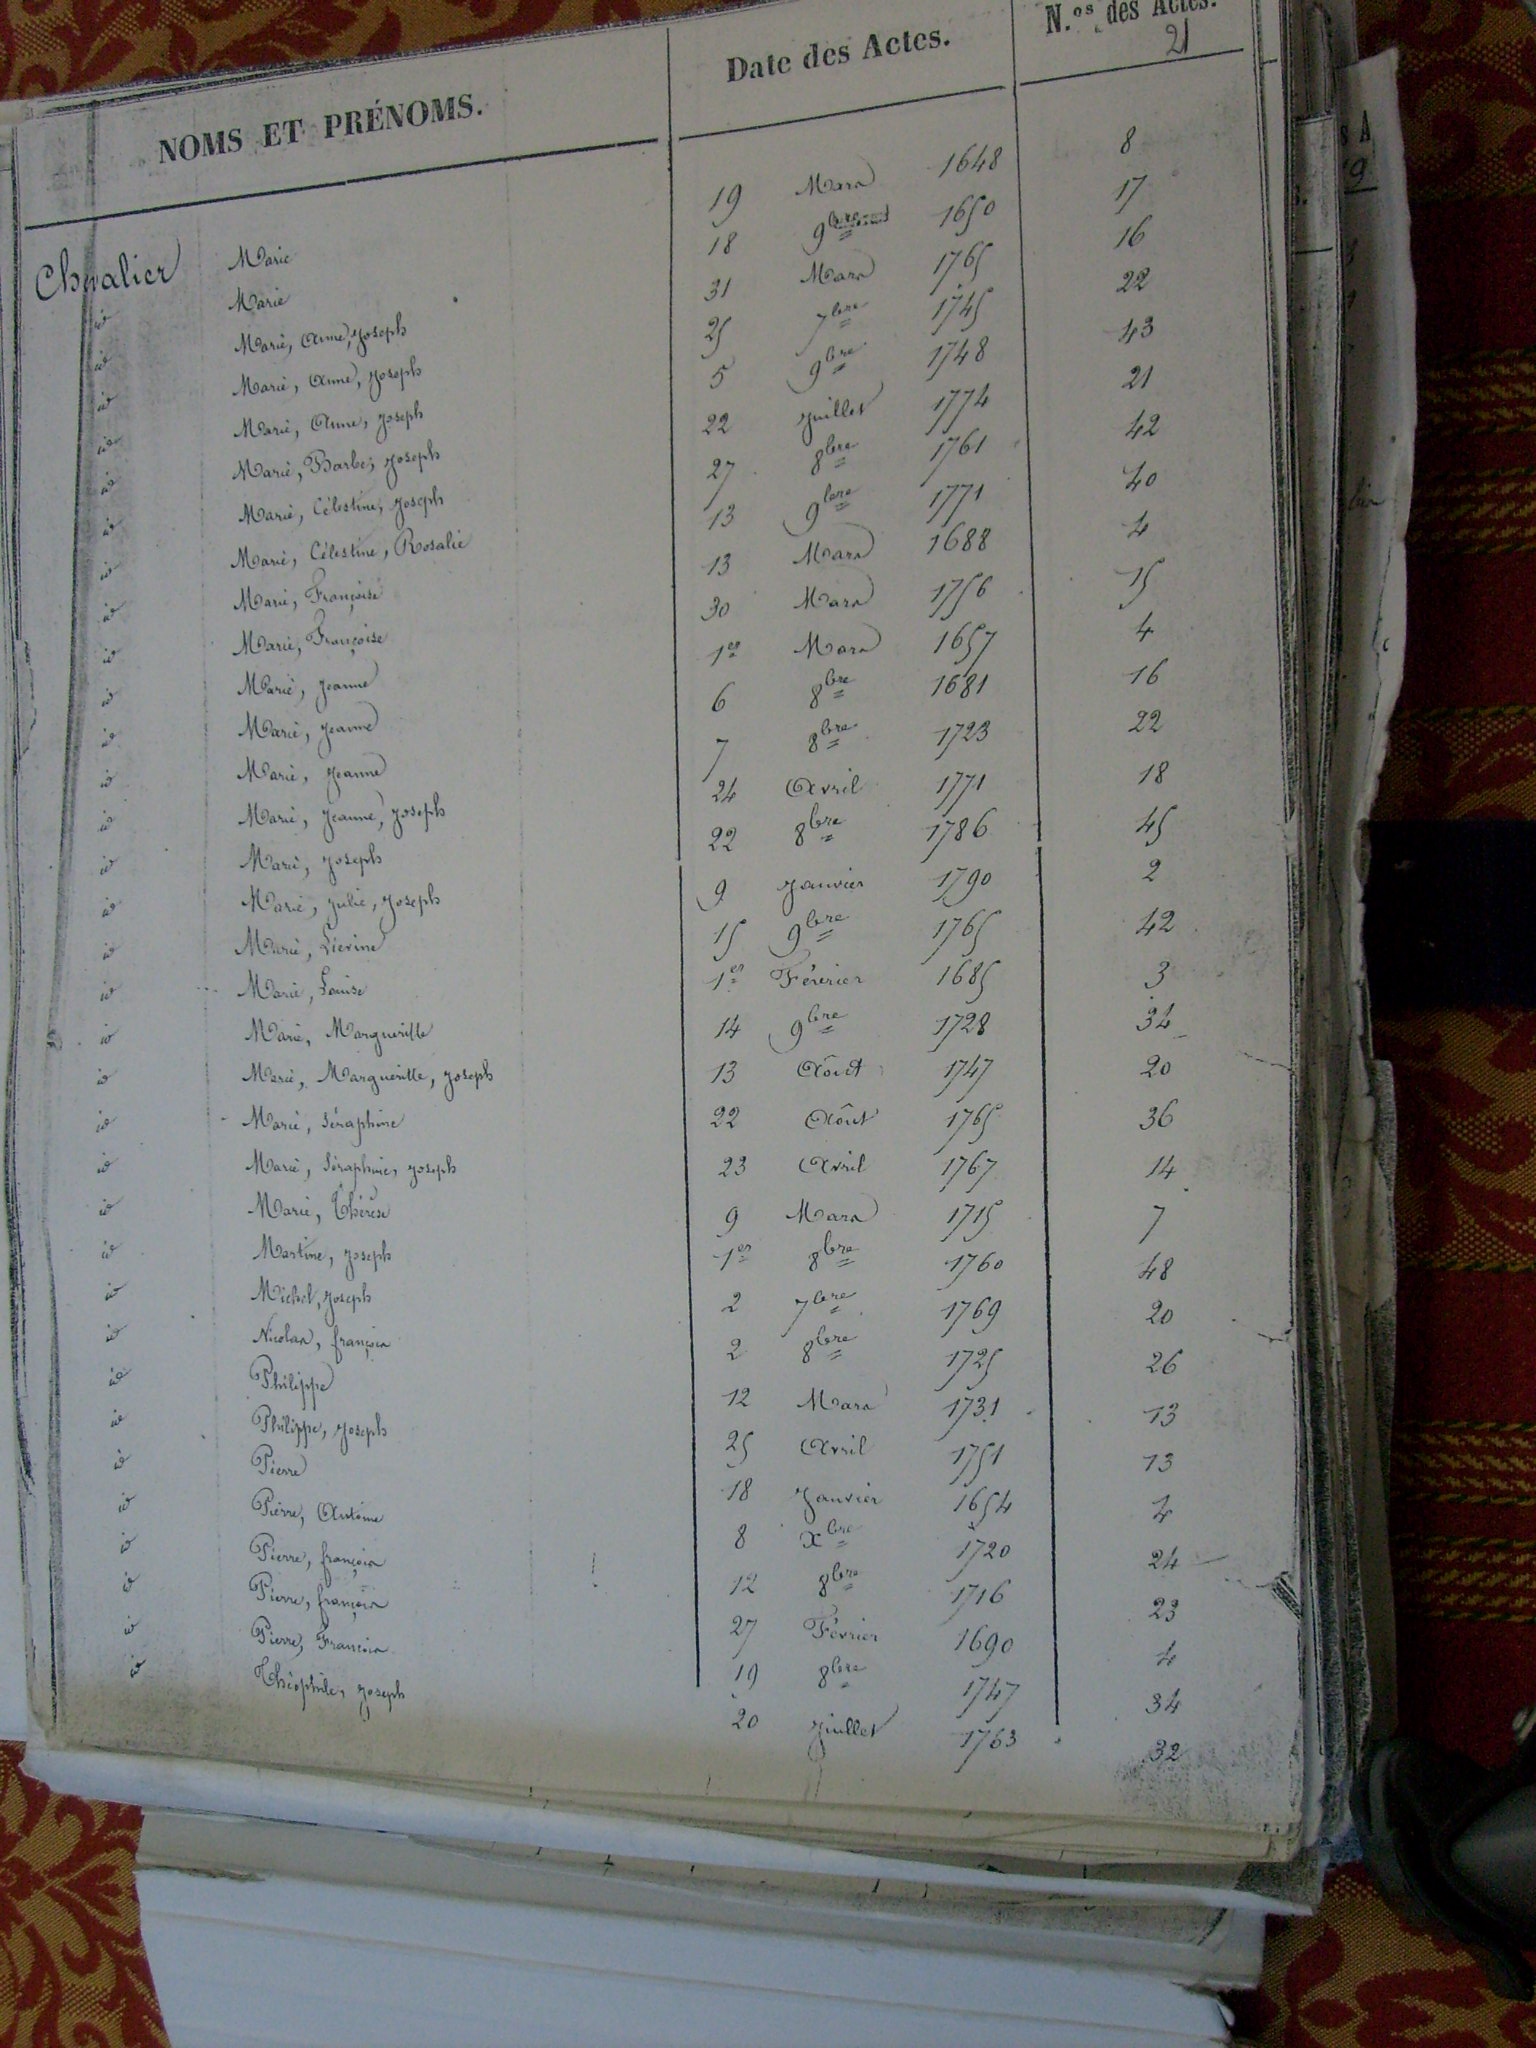 NOMS ET PRÉNOMS. Date des Actes. N.os des Actes.
21
Chevalier Marie 19 Mars 1648 8
id Marie 18 9bre 1650 17
id Marie, Anne, Joseph 31 Mars 1765 16
id Marie, Anne, Joseph 25 7bre 1745 22
id Marie, Anne, Joseph 5 9bre 1748 43
id Marie, Barbe, Joseph 22 Juillet 1774 21
id Marie, Célestine, Joseph 27 8bre 1761 42
id Marie, Célestine, Rosalie 13 9bre 1771 40
id Marie, Françoise 13 Mars 1688 4
id Marie, Françoise 30 Mars 1756 15
id Marie, Jeanne 1er Mars 1657 4
id Marie, Jeanne 6 8bre 1681 16
id Marie, Jeanne 7 8bre 1723 22
id Marie, Jeanne, Joseph 24 Avril 1771 18
id Marie, Joseph 22 8bre 1786 45
id Marie, Julie, Joseph 9 Janvier 1790 2
id Marie, Lievine 15 9bre 1765 42
id Marie, Louise 1er Février 1685 3
id Marie, Margueritte 14 9bre 1728 34
id Marie, Margueritte, Joseph 13 Août 1747 20
id Marie, Séraphine 22 Août 1765 36
id Marie, Séraphine, Joseph 23 Avril 1767 14
id Marie, Thérèse 9 Mars 1715 7
id Martine, Joseph 1er 8bre 1760 48
id Michel, Joseph 2 7bre 1769 20
id Nicolas, françois 2 8bre 1725 26
id Philippe 12 Mars 1731 13
id Philippe, Joseph 25 Avril 1751 13
id Pierre 18 Janvier 1654 4
id Pierre, Antoine 8 Xbre 1720 24
id Pierre, françois 12 8bre 1716 23
id Pierre, françois 27 Février 1690 4
id Pierre, François 19 8bre 1747 34
id Théophile, Joseph 20 Juillet 1763 32